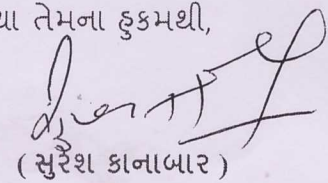 તેમના હુકમથી,
( સુરેશ કાનાબાર )